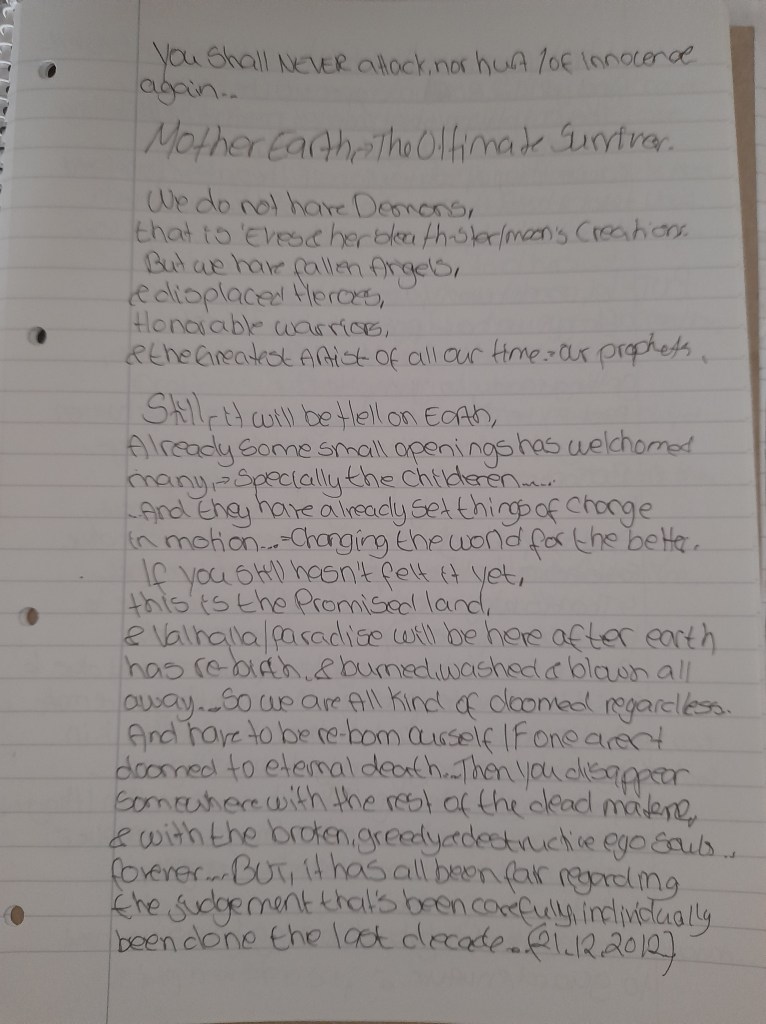 You Shall NEVER attack, nor hurt 1 of Innocence
again...
Mother Earth,→The Oltimate Surviver.
We do not have Demons,
that is 'Eves & her Creations.
But we have fallen Angels,
& displaced Heroes,
Honorable warriors,
& the Greatest Artist of all our time.→our prophets.
Still, it will be Hell on Earth,
Already some small openings has welchomed
many,→Specially the Childeren.....
And they have already set things of change
in motion...→Changing the world for the better.
If you still hasn't felt it yet,
this is the Promised land,
& Valhalla/paradise will be here after earth
has re-birth, & burned, washed & blown all
away... So we are All kind of doomed regardless.
And have to be re-born ourself IF one arent
doomed to eternal death...Then you disappear
somewhere with the rest of the dead
& with the broken, greedy & destructive ego souls...
forever.... BUT, it has all been fair regarding
the judgement that's been carefully, individually
been done the last decade. [21.12.2012]